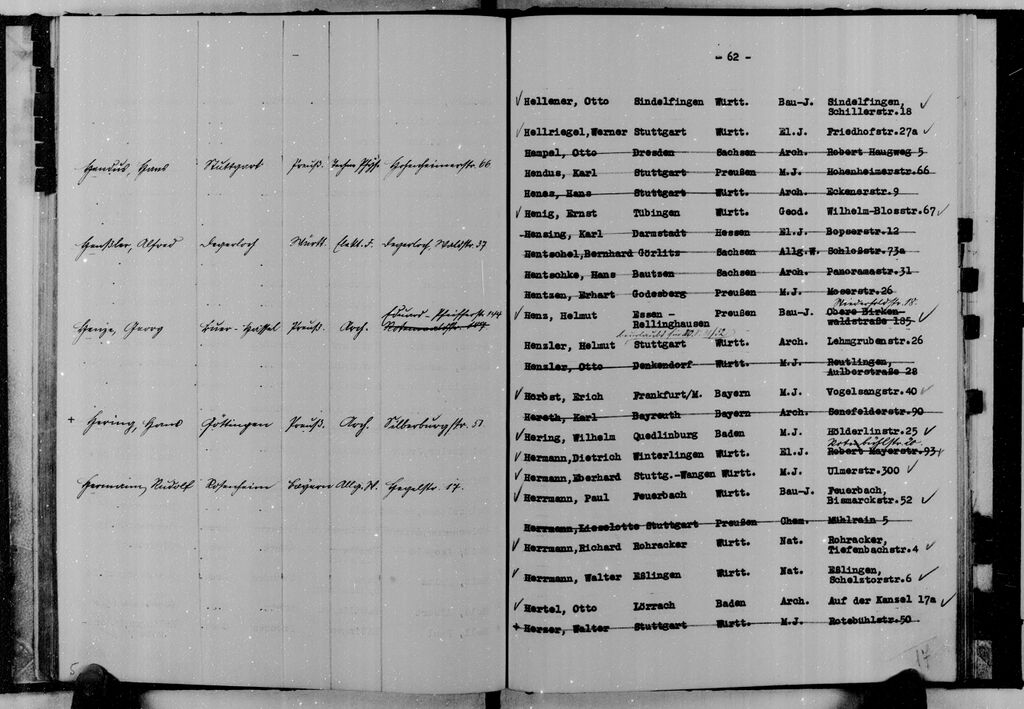 Hendus, Hans Stuttgart Preuß. Hohenheimerstr. 66
Henßler, Alfred Degerloch Württ. Elekt. J. Degerloch, Waldstr. 37
Edmund-Pfeifferstr. 144
Georg Buer-Hassel Preuß. Arch.
+ Hering, Hans Göttingen Preuß. Arch. Silberburgstr. 51
Hermann, Rudolf Rosenheim Bayern Allg. W. Hegelstr. 17.
5
- 62 -
✓ Hellener, Otto Sindelfingen Württ. Bau-J. Sindelfingen, ✓
Schillerstr.18
✓ Hellriegel,Werner Stuttgart Württ. El.J. Friedhofstr.27a ✓
Hempel, Otto Dresden Sachsen Arch. Robert Haugweg 5
Hendus, Karl Stuttgart Preußen M.J. Hohenheimerstr.66
Henes, Hans Stuttgart Württ. Arch. Eckenerstr.9
✓ Henig, Ernst Tübingen Württ. Geod. Wilhelm-Blosstr.67 ✓
Hensing, Karl Darmstadt Hessen El.J. Bopserstr.12
Hentschel,Bernhard Görlitz Sachsen Allg.W. Schloßstr.73a
Hentschke, Hans Bautzen Sachsen Arch. Panoramastr.31
Hentzen, Erhart Godesberg Preußen M.J. Moserstr.26
Niederfeldstr. 18.
✓ Henz, Helmut Essen - Preußen Bau-J. Obere Birken-
Rellinghausen waldstraße 185 ✓
Henzler, Helmut Stuttgart Württ. Arch. Lehmgrubenstr.26
Henzler, Otto Denkendorf Württ. M.J. Reutlingen,
Aulberstraße 28
✓ Herbst, Erich Frankfurt/M. Bayern M.J. Vogelsangstr.40 ✓
Hereth, Karl Bayreuth Bayern Arch. Senefelderstr.90
✓ Hering, Wilhelm Quedlinburg Baden M.J. Hölderlinstr.25 ✓
Rotebühlstr. 20.
✓ Hermann,Dietrich Winterlingen Württ. El.J. Robert Mayerstr.93 ✓
✓ Hermann,Eberhard Stuttg.-Wangen Württ. M.J. Ulmerstr.300 ✓
✓ Herrmann, Paul Feuerbach Württ. Bau-J. Feuerbach,
Bismarckstr.52 ✓
Herrmann,Lieselotte Stuttgart Preußen Chem. Mühlrain 5
✓ Herrmann,Richard Rohracker Württ. Nat. Rohracker,
Tiefenbachstr.4 ✓
✓ Herrmann, Walter Eßlingen Württ. Nat. Eßlingen,
Schelztorstr.6 ✓
✓ Hertel, Otto Lörrach Baden Arch. Auf der Kanzel 17a ✓
+ Herzer, Walter Stuttgart Württ. M.J. Rotebühlstr.50
17